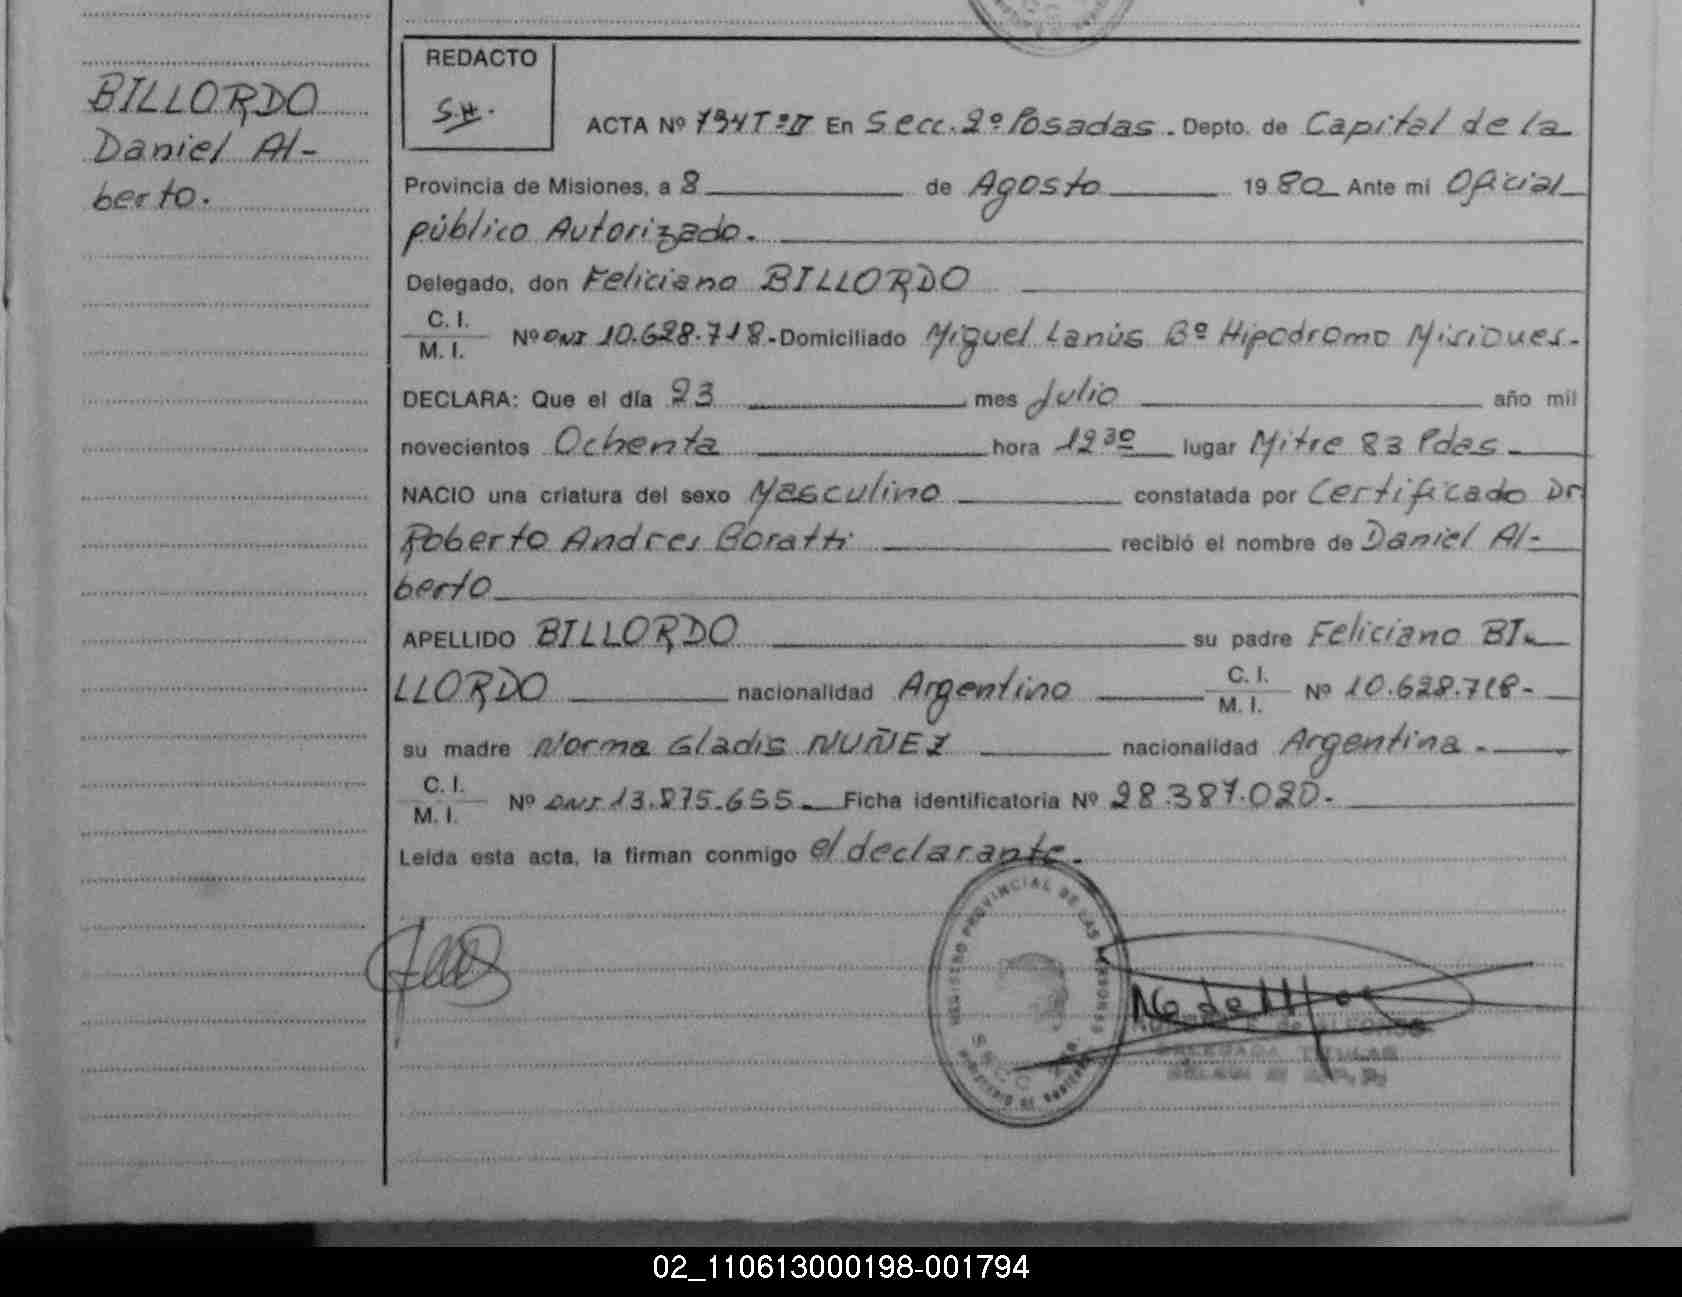 BILLORDO
Daniel Al-
berto.
REDACTO
S.H.
ACTA Nº 794 Tº II En Secc. 2º Posadas. Depto. de Capital de la
Provincia de Misiones, a 8 de Agosto 1980 Ante mi Oficial
público Autorizado.
Delegado, don Feliciano BILLORDO
C. I.
M. I. Nº DNI 10.628.718.- Domiciliado Miguel Lanús Bº Hipodromo Misiones.-
DECLARA: Que el día 23 mes Julio año mil
novecientos Ochenta hora 12 30 lugar Mitre 83 Pdas
NACIO una criatura del sexo Masculino constatada por Certificado Dr
Roberto Andres Boratti recibió el nombre de Daniel Al-
berto
APELLIDO BILLORDO su padre Feliciano BI-
LLORDO nacionalidad Argentino C. I.
M. I. Nº 10.628.718-
su madre Norma Gladis NUÑEZ nacionalidad Argentina.-
C. I.
M. I. Nº DNI 13.875.655. Ficha identificatoria Nº 28.387.020.-
Leída esta acta, la firman conmigo el declarante.
REGISTRO PROVINCIAL DE LAS PERSONAS
SECC.
DELEGADA TITULAR
02_110613000198-001794